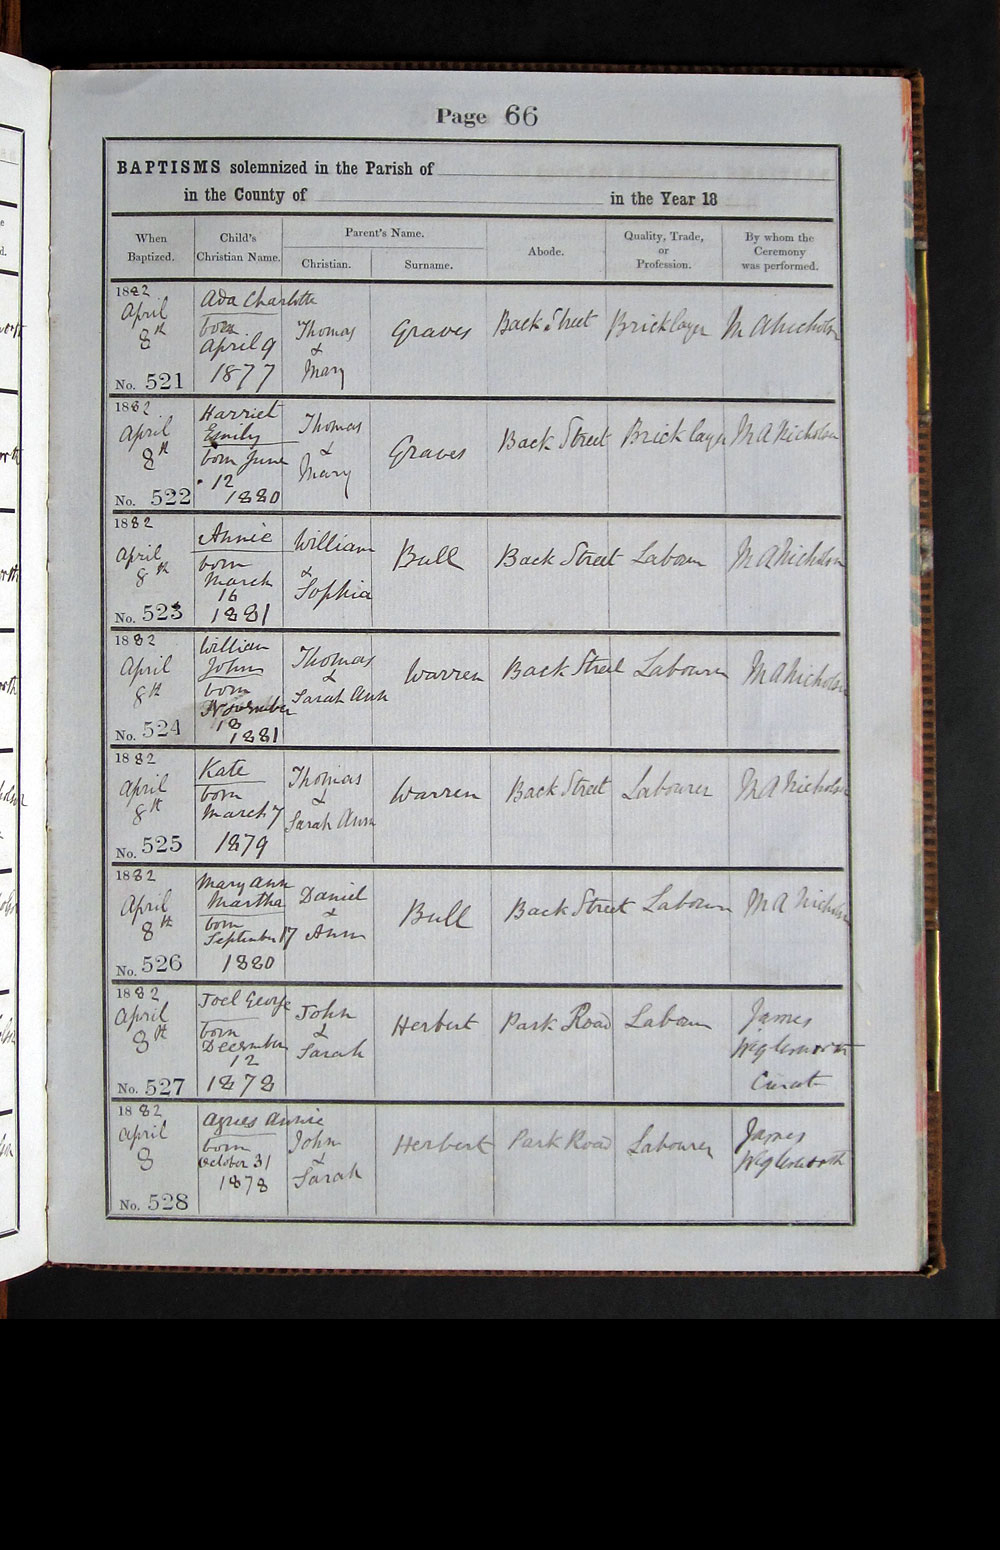 Page 66
BAPTISMS solemnized in the Parish of
in the County of in the Year 18
When Baptized.
Child's Christian Name.
Parent's Name.
Christian.
Surname.
Abode.
Quality, Trade, or Profession.
By whom the Ceremony was performed.
1882
April
8th
No. 521
Ada Charlotte
born
April 9
1877
Thomas
&
Mary
Graves
Back Street
Bricklayer
M A Nicholson
1882
April
8th
No. 522
Harriet
Emily
born June
12
1880
Thomas
&
Mary
Graves
Back Street
Bricklayer
M A Nicholson
1882
April
8th
No. 523
Annie
born
March
16
1881
William
&
Sophia
Bull
Back Street
Labourer
M A Nicholson
1882
April
8th
No. 524
William
John
born
November
18
1881
Thomas
&
Sarah Ann
Warren
Back Street
Labourer
M A Nicholson
1882
April
8th
No. 525
Kate
born
March 7
1879
Thomas
&
Sarah Ann
Warren
Back Street
Labourer
M A Nicholson
1882
April
8th
No. 526
Mary Ann
Martha
born
September 17
1880
Daniel
&
Ann
Bull
Back Street
Labourer
M A Nicholson
1882
April
8th
No. 527
Joel George
born
December
12
1878
John
&
Sarah
Herbert
Park Road
Labourer
James
Wiglesworth
Curate
1882
April
8
No. 528
Agnes Annie
born
October 31
1878
John
&
Sarah
Herbert
Park Road
Labourer
James
Wiglesworth